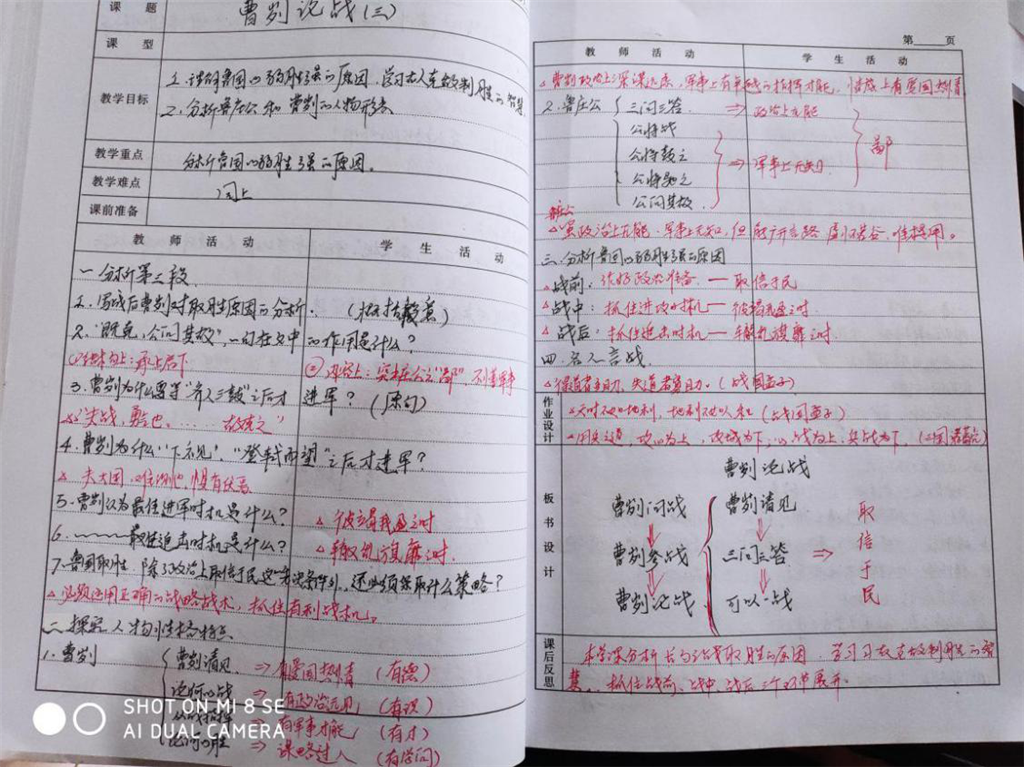 课 题 曹刿论战(三)
课 型
教学目标 1.说明鲁国以弱胜强的原因,学习古人克敌制胜的智慧
2.分析鲁庄公和曹刿的人物形象
教学重点 分析鲁国以弱胜强的原因。
教学难点 同上
课前准备
教 师 活 动 学 生 活 动
一 分析第三段
1.写战后曹刿对取胜原因的分析. (概括段意)
2.“既克,公问其故”,一句在文中的作用是什么?
①结构上:承上启下 ②内容上:突出庄公之“鄙”,不善军事
3.曹刿为什么要等“齐人三鼓”之后才进军?(原句)
△“夫战,勇气也。…… 故克之”
4.曹刿为什么“下视”、“登轼而望”之后才进军?
△ 夫大国,难测也,惧有伏焉
5.曹刿认为最佳进军时机是什么? △ 彼竭我盈之时
6.﹏﹏﹏﹏最佳追击时机是什么? △ 辙乱旗靡之时.
7.鲁国取胜,除了政治上取信于民这一先决条件外,还必须采取什么策略?
△必须运用正确的战略战术,抓住有利战机。
二 探究人物性格特点
1.曹刿 曹刿请见 ⇒有爱国热情 (有德)
论何以战 ⇒有政治远见 (有识)
从战指挥 ⇒有军事才能 (有才)
论何以胜 ⇒谋略过人 (有学问)
SHOT ON MI 8 SE
AI DUAL CAMERA
第 页
教 师 活 动 学 生 活 动
△曹刿政治上深谋远虑,军事上有卓越的指挥才能,情感上有爱国热情
2.鲁庄公 三问三答 ⇒政治上无能
公将战
公将鼓之 ⇒军事上无知 鄙
公将驰之
公问其故.
鲁庄公
△虽政治上无能,军事上无知,但能广开言路,唯才是用。
三.分析鲁国以弱胜强的原因
△战前:作好政治准备 — 取信于民
△战中:抓住进攻时机 — 彼竭我盈之时
△战后:抓住追击时机 — 辙乱旗靡之时.
四.名人言战
△得道者多助,失道者寡助。(战国孟子)
作业设计 △天时不如地利,地利不如人和(战国孟子)
△用兵之道,攻心为上,攻城为下,心战为上,兵战为下,(三国
板书设计 曹刿论战
曹刿问战 曹刿请见 取
曹刿参战 三问三答 ⇒ 信
曹刿论战 可以一战 于
民
课后反思 本堂课分析长勺之战取胜的原因 学习了故克敌制胜的智
慧,抓住战前、战中、战后三个环节展开.